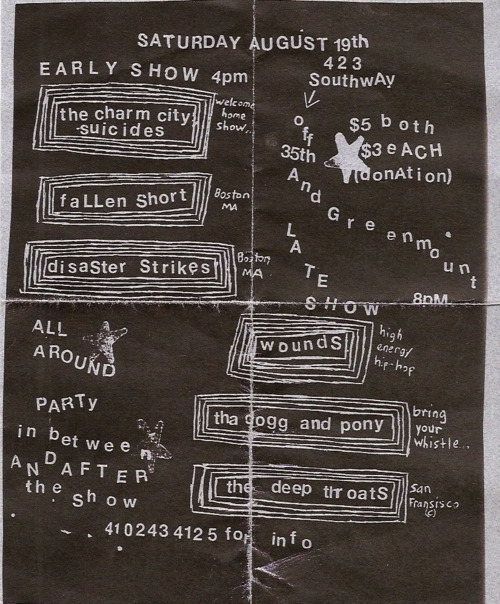 SATURDAY AUGUST 19th
EARLY SHOW 4pm
the charm city
suicides
welcome
home
show..
fallen short
Boston
MA
disaSter StrikeS
Boston
MA
423
SouthwAy
off
35th
And Greenmount
$5 both
$3 eACH
(donAtion)
LATE
SHOW 8pM
woundS
high
energy
hip-hop
tha dogg and pony
bring
your
whistle...
the deep throatS
San
Fransisco
(c)
ALL
AROUND
PARTy
in between
AND AFTER
the Show
4102434125 for info